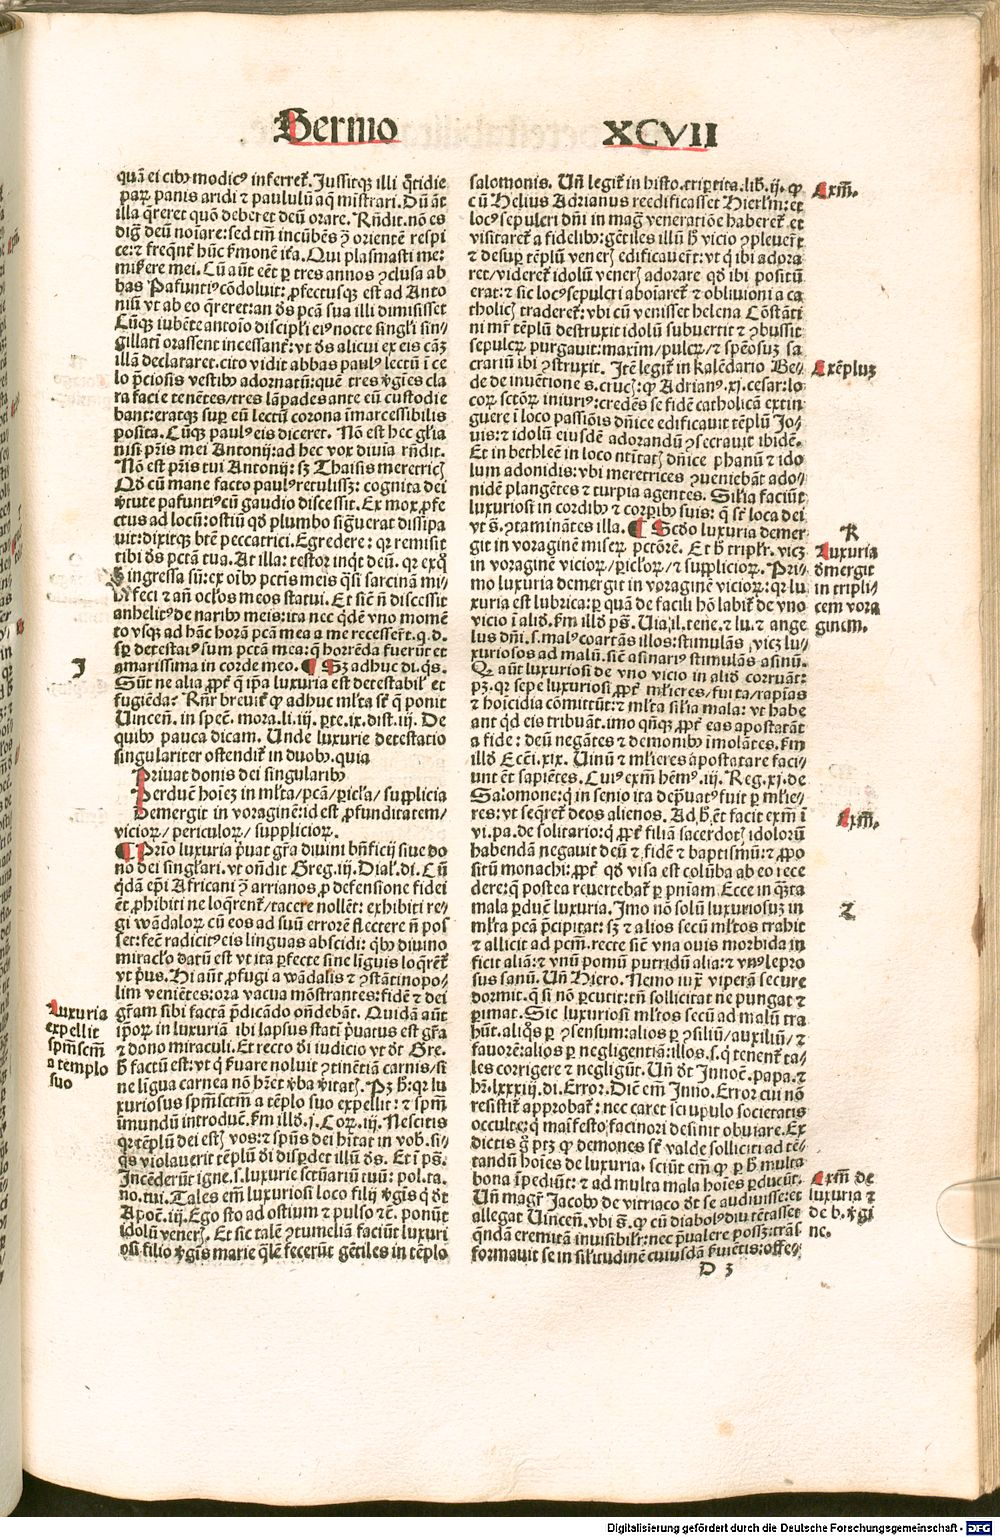 Sermo XCVII
quā ei cibꝰ modicꝰ inferret̄. Jussitqꝫ illi q̄tidie
paꝝ panis aridi ⁊ paululū aq̄ mistrari. Dū āt
illa q̄reret quō deberet deū orare. Rn̄dit. nō es
diḡ deū noiare: sed tm̄ incūbēs ꝯ orientē respi
ce: ⁊ freq̄nt̄ hūc ẜmonē ita. Qui plasmasti me:
miserere mei. Cū aūt eēt ꝑ tres annos ꝯclusa ab
bas Pafuntiꝰ cōdoluit: ꝓfectusqꝫ est ad Anto
niū vt ab eo q̄reret: an d̄s pcā sua illi dimisisset
Cūqꝫ iubēte antoio discipl̄i eiꝰ nocte singl̄i sin⸗
gillatī orassent incessant̄: vt d̄s alicui ex eis cāꝫ
illā declararet. cito vidit abbas paulꝰ lectū i ce
lo p̄ciosis vestibꝰ adornatū: quē tres v̄gīes cla
ra facie tenētes/tres lāpades ante eū custodie
bant: eratqꝫ suꝑ eū lectū corona īmarcessibilis
posita. Cūqꝫ paulꝰ eis diceret. Nō est hec gr̄ia
nisi pr̄is mei Antonij: ad hec vox divia rn̄dit.
Nō est pr̄is tui Antonij: sꝫ Thaisis meretricꝭ
Qd̄ cū mane facto paulꝰ retulissꝫ: cognita dei
v̄tute pafuntiꝰ cū gaudio discessit. Et mox ꝓfe
ctus ad locū: ostiū qd̄ plumbo sig̅uerat dissipa
uit: dixitqꝫ btē peccatrici. Egredere: qꝛ remisit
tibi d̄s pctā tua. At illa: testor inq̄t deū. qꝛ ex q̄
h̄ ingressa sū: ex oibꝰ pctis meis q̄si sarcinā mi⸗
hi feci ⁊ an̄ oclos meos statui. Et sic̄ n̄ discessit
anhelitꝰ de naribꝰ meis: ita nec q̄dē vno momē
to vsqꝫ ad hāc horā pcā mea a me recesser̄t. q. d.
sꝑ detestatꝰ sum pctā mea: q̄ horrēda fuerūt et
amarissima in corde meo. ¶ Sꝫ adhuc di. q̄s.
Sūt ne alia ꝓpt̄ q̄ ip̄a luxuria est detestabil̄ et
fugiēda? Rn̄r breuit̄ qꝙ adhuc ml̄ta st̄ q̄ ponit
Vincen̄. in specl̄. mora. li. iij. ꝑte. ix. dist. iij. De
quibꝰ pauca dicam. Unde luxurie detestatio
singulariter ostendit̄ in duobꝰ. quia
Priuat donis dei singularibꝰ
Perducit hoīeꝫ in ml̄ta/pcā/ꝑicl̄a/ supplicia
Demergit in voraginē: id est ꝓfunditatem/
vicioꝝ/ periculoꝝ/ supplicioꝝ.
¶ Prīo luxuria p̄uat gr̄a divini bn̄ficij siue do
no dei singl̄ari. vt on̄dit Greg. iij. Dial. di. Cū
q̄dā ep̄i Africani ꝯ arrianos ꝓ defensione fidei
ēt ꝓhibiti ne loq̄rent̄/tacere nollēt: exhibiti re⸗
gi wādaloꝝ cū eos ad suū errorē flectere n̄ pos
set: fec̄ radicitꝰ eis linguas abscidi: qbꝰ divino
miracl̄o datū est vt ita ꝑfecte sine līguis loq̄rēt̄
vt p̄us. Hi aūt ꝓfugi a wādalis ⁊ ꝯstātinopo⸗
lim veniētes: ora vacua mōstrantes: fidē ⁊ dei
gr̄am sibi factā p̄dicādo on̄debāt. Quidā aūt
ip̄oꝝ in luxuriā ibi lapsus stati p̄uatus est gr̄a
⁊ dono miraculi. Et recto di iudicio vt d̄t Gre.
h̄ factū est: vt q̄ ẜuare noluit ꝯtinētiā carnis/si
ne līgua carnea nō hr̄et v̄ba v̄itatꝭ. Pꝫ h̄: qꝛ lu
xuriosus spm̄sctm̄ a tēplo suo expellit: ⁊ spm̄
īmundū introduc̄. ẜm illd̄. j. Coꝝ. iij. Nescitis
qꝛ tēplū dei estꝭ vos: ⁊ spūs dei hītat in vob̄. si⸗
q̄s violauerit tēplū di disꝑdet illū d̄s. Et ī ps̄.
Incēderūt igne. s. luxurie sctuariū tuū: pol. ta.
no. tui. Tales em̄ luxuriosi loco filij v̄gīs q̄ d̄t
Apoc̄. iij. Ego sto ad ostium ⁊ pulso ⁊c̄. ponūt
idolū venerꝭ. Et sic talē ꝯtumeliā faciūt luxuri
osi filio v̄gīs marie q̄lē fecerūt gētiles in tēplo
J
Luxuria
expellit
spm̄scm̄
a templo
suo
salomonis. Un̄ legit̄ in histo. triꝑtita. lib̄. ij. qꝙ
cū Helius Adrianus reedificasset Hierl̄m: et
locꝰ sepulcri dn̄i in mag̅ veneratiōe haberet̄. et
visitaret̄ a fidelibꝰ: gētiles illū h̄ vicio ꝯpleuer̄t
⁊ desuꝑ tēplū venerꝭ edificauer̄t: vt q̄ ibi adora
ret/videret̄ idolū venerꝭ adorare qd̄ ibi positū
erat: ⁊ sic locꝰ sepulcri aboiaret̄ ⁊ obliuioni a ca
tholicꝭ traderet̄: vbi cū venisset helena Cōstāti
ni mr̄ tēplū destruxit idolū subuertit ⁊ ꝯbussit
sepulcꝝ purgauit: maxim̄/pulcꝝ/ ⁊ spēosuꝫ sa
crariū ibi ꝯstruxit. Itē legit̄ in kalēdario Be⸗
de de inuētione s. crucꝭ: qꝙ Adrianꝰ. xj. cesar: lo⸗
coꝝ sctōꝝ iniuriꝰ: credēs se fidē catholicā extin
guere ī loco passiōis dn̄ice edificauit tēplū Jo⸗
uis: ⁊ idolū eiusdē adorandū ꝯsecrauit ibidē.
Et in bethleē in loco ntītatꝭ dn̄ice phanū ⁊ ido
lum adonidis: vbi meretrices ꝯueniebāt ado⸗
nidē plangētes ⁊ turpia agentes. Sil̄ia faciūt
luxuriosi in cordibꝰ ⁊ corꝑibꝰ suis: q̄ st̄ loca dei
vt s̄. ꝯtaminātes illa. ¶ Scd̄o luxuria demer⸗
git in voraginē miseꝝ pctōrē. Et h̄ triplr̄. vicꝫ
in voraginē vicioꝝ/ ꝑiclōꝝ/ ⁊ supplicioꝝ. Pri⸗
mo luxuria demergit in voraginē vicioꝝ: qꝛ lu
xuria est lubrica: ꝑ quā de facili hō labit̄ de vno
vicio ī aliḋ. ẜm illd̄ ps̄. Uia il. tene. ⁊ lu. ⁊ ange
lus dn̄i. s. malꝰ coartās illos: stimulās ꝯ vicꝫ lu⸗
xuriosos ad malū. sic̄ asinariꝰ stimulās asinū.
Qꝙ aūt luxuriosi de vno vicio in aliḋ corruāt:
pꝫ. qꝛ sepe luxuriosi ꝓpt̄ ml̄ieres/furta/rapias
⁊ hoīcidia cōmittūt: ⁊ ml̄ta sil̄ia mala: vt habe
ant q̄d eis tribuāt. imo qn̄qꝫ ꝓpt̄ eas apostatāt
a fide: deū negātes ⁊ demonibꝰ īmolātes. ẜm
illd̄ Ecc̄i. xix. Uinū ⁊ ml̄ieres apostatare faci⸗
unt ēt sapiētes. Cuiꝰ exm̄ hēmꝰ. iij. Reg. xj. de
Salomone: q̄ in senio ita dep̄uatꝰ fuit ꝑ ml̄ie⸗
res: vt seq̄ret̄ deos alienos. Ad h̄ ēt facit exm̄ ī
vi. pa. de solitario: q̄ ꝓpt̄ filiam sacerdotꝭ idoloꝝ
habendā negauit deū ⁊ fidē ⁊ baptismū: ⁊ ꝓpo
sitū monachi: ꝓpt̄ qd̄ visa est colūba ab eo rece
dere: q̄ postea reuertebat̄ ꝑ pn̄iam. Ecce in q̄nta
mala ꝑducē luxuria. Imo nō solū luxuriosuꝫ in
ml̄ta pcā p̄cipitat: sꝫ ⁊ alios secū ml̄tos trahit
⁊ allicit ad pcm̄. recte sic̄ vna ouis morbida in
ficit aliā: ⁊ vnū pomū putridū alia: ⁊ vnꝰ lepro
sus sanū. Un̄ Hiero. Nemo iux̄ viperā secure
dormit. q̄ si nō ꝑcutit: tn̄ sollicitat ne pungat ⁊
ꝑimat. Sic luxuriosi ml̄tos secū ad malū tra
hūt. aliq̄s ꝑ ꝯsensum: alios ꝑ ꝯsiliū/auxiliū/ ⁊
fauorē: alios ꝑ negligentiā: illos. s. q̄ tenent̄ ta⸗
les corrigere ⁊ negligūt. Un̄ d̄t Innoc̄. papa. ⁊
hr̄. lxxxiij. di. Error. Dic̄ em̄ Inno. Error cui nō
resistit̄ approbat̄: nec caret scrupulo societatis
occulte: q̄ maīfesto facinori desinit obuiare. Ex
dictis g̊ ptꝫ qꝙ demones st̄ valde solliciti ad tē⸗
tandū hoīes de luxuria. sciūt em̄ qꝙ ꝑ h̄ multa
bona īpediūt: ⁊ ad multa mala hoīes ꝑducūt.
Un̄ magr̄ Jacobꝰ de vitriaco d̄t se audiuisse: et
allegat Uincen̄. vbi s̄. qꝙ cū diabolꝰ diu tētasset
q̄ndā eremitā inuisibilr̄: nec p̄ualere possꝫ: trās
formauit se in sil̄itudinē cuiusdā ẜuiētis: offe⸗
Exm̄.
Exēpluꝫ
K
Luxuria
d̄mergit
in tripli⸗
cem vora
ginem.
Exm̄.
2
Exm̄ de
luxuria ⁊
de b. v̄gi
ne.
D 3
Digitalisierung gefördert durch die Deutsche Forschungsgemeinschaft - DFG